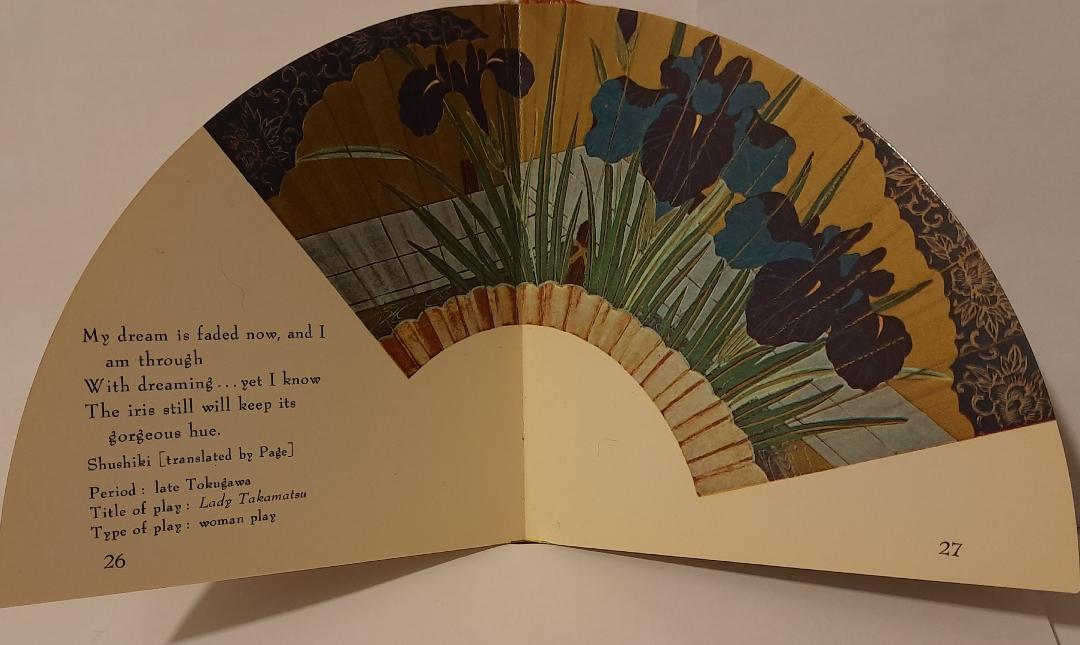 My dream is faded now, and I
am through
With dreaming...yet I know
The iris still will keep its
gorgeous hue.
Shushiki [translated by Page]
Period : late Tokugawa
Title of play : Lady Takamatsu
Type of play : woman play
26
27